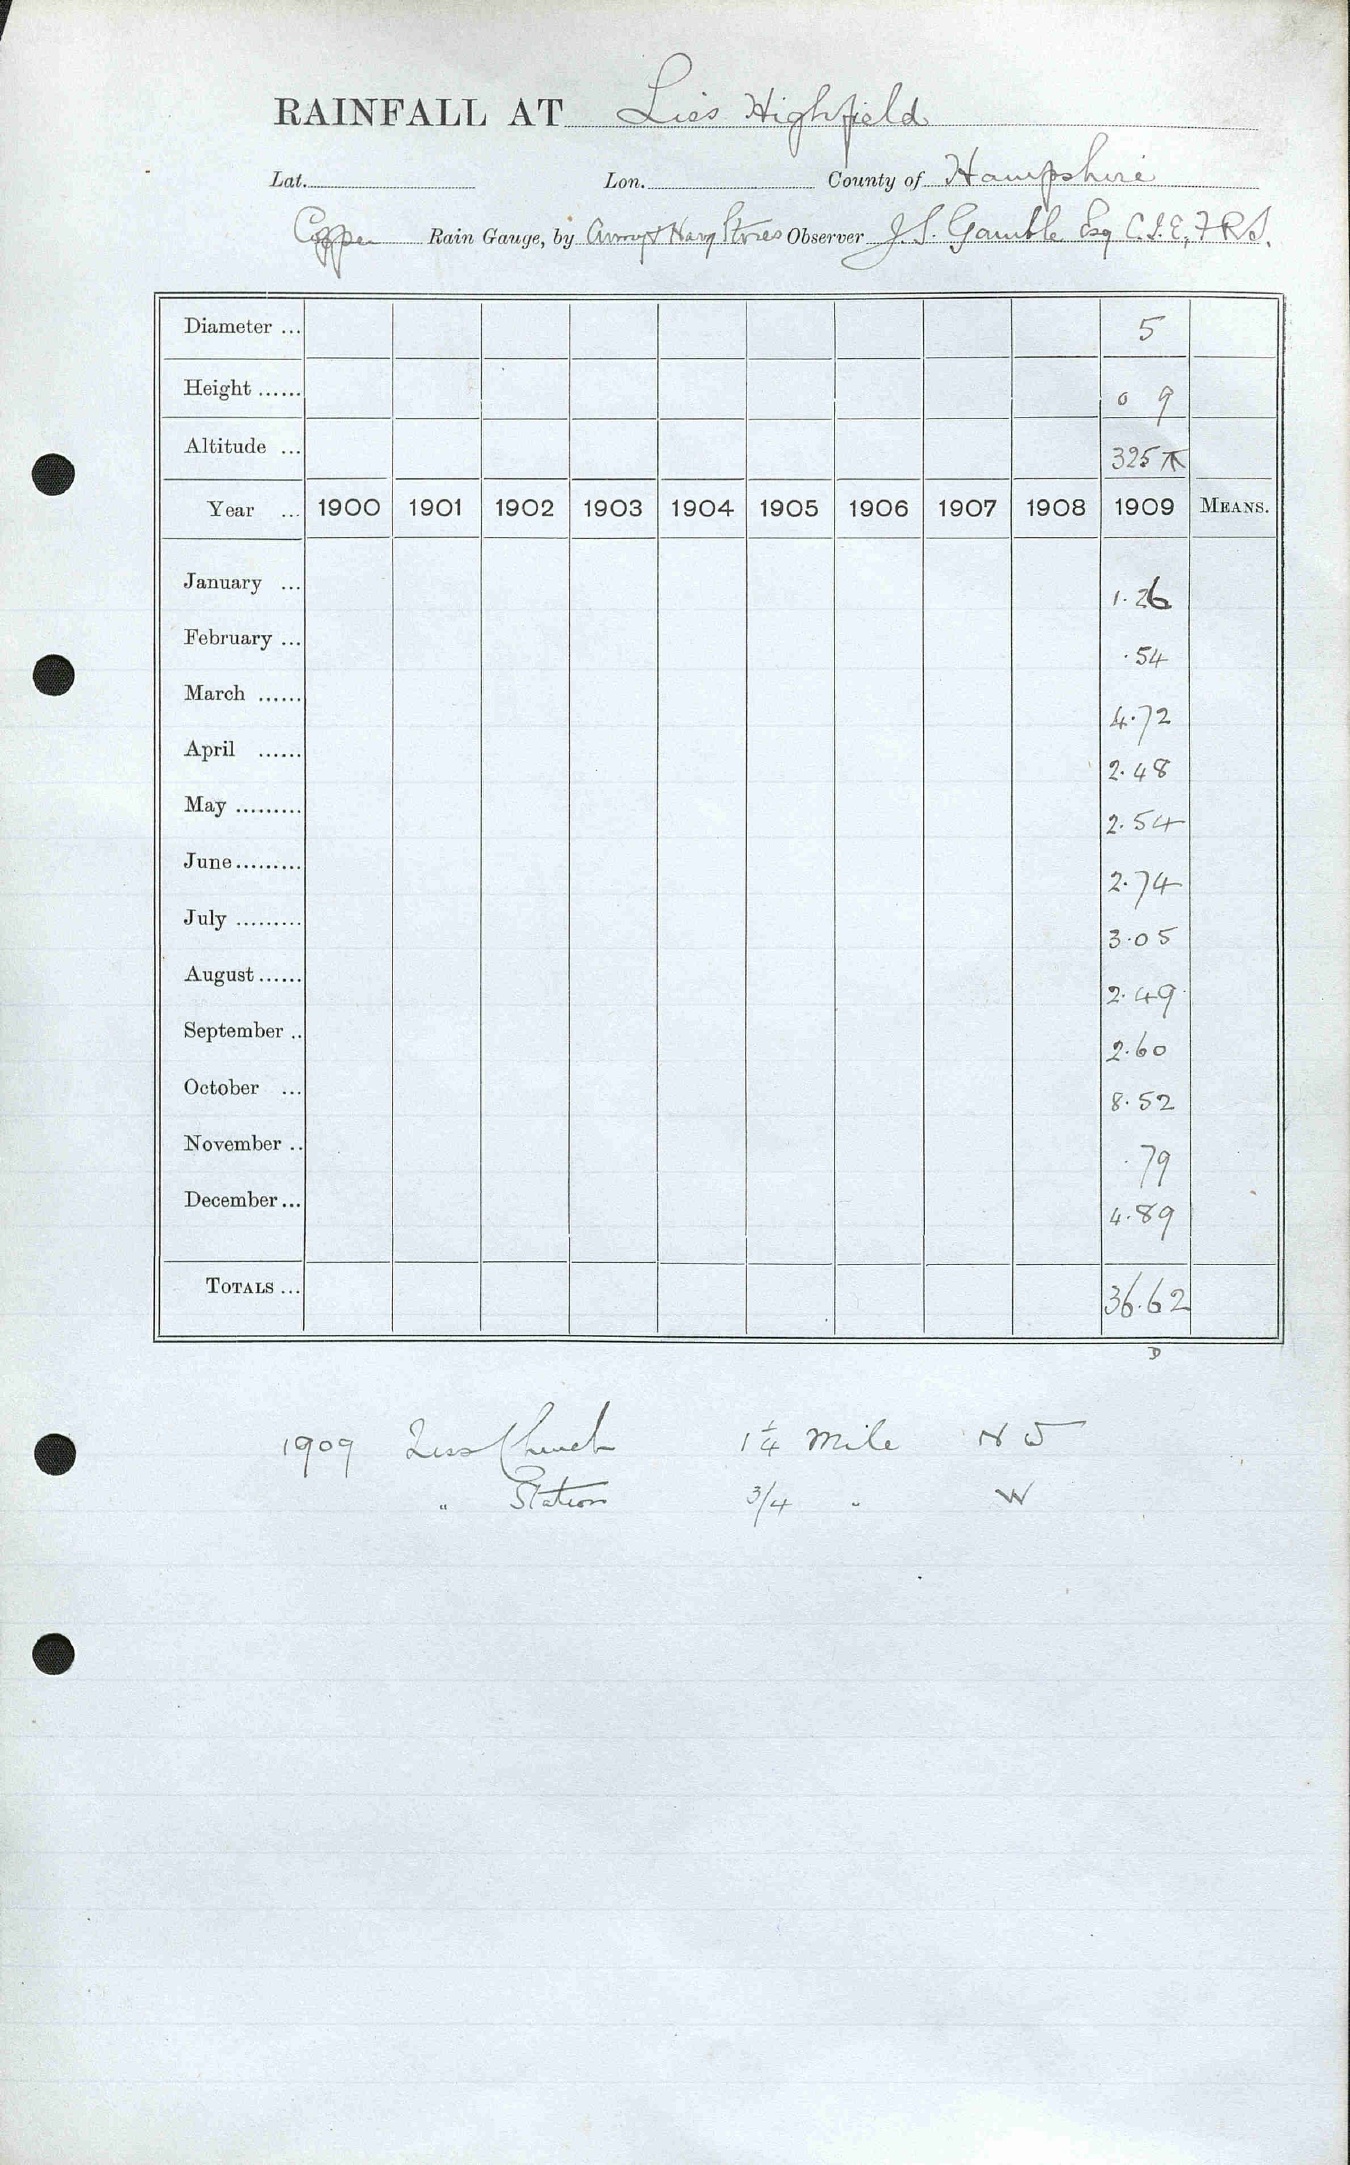 RAINFALL AT Liss Highfield
Lat. Lon. County of Hampshire
Copper Rain Gauge, by Army & Navy Stores Observer J. S. Gamble Esq C.I.E, F R S.
Diameter ... 5
Height ...... 0 9
Altitude ... 325
Year ... 1900 1901 1902 1903 1904 1905 1906 1907 1908 1909 MEANS.
January ... 1.26
February ... .54
March ...... 4.72
April ...... 2.48
May ......... 2.54
June ......... 2.74
July ......... 3.05
August ...... 2.49
September .. 2.60
October ... 8.52
November .. .79
December ... 4.89
TOTALS ... 36.62
D
1909 Liss Church 1 1/4 Mile N W
" Station 3/4 " W